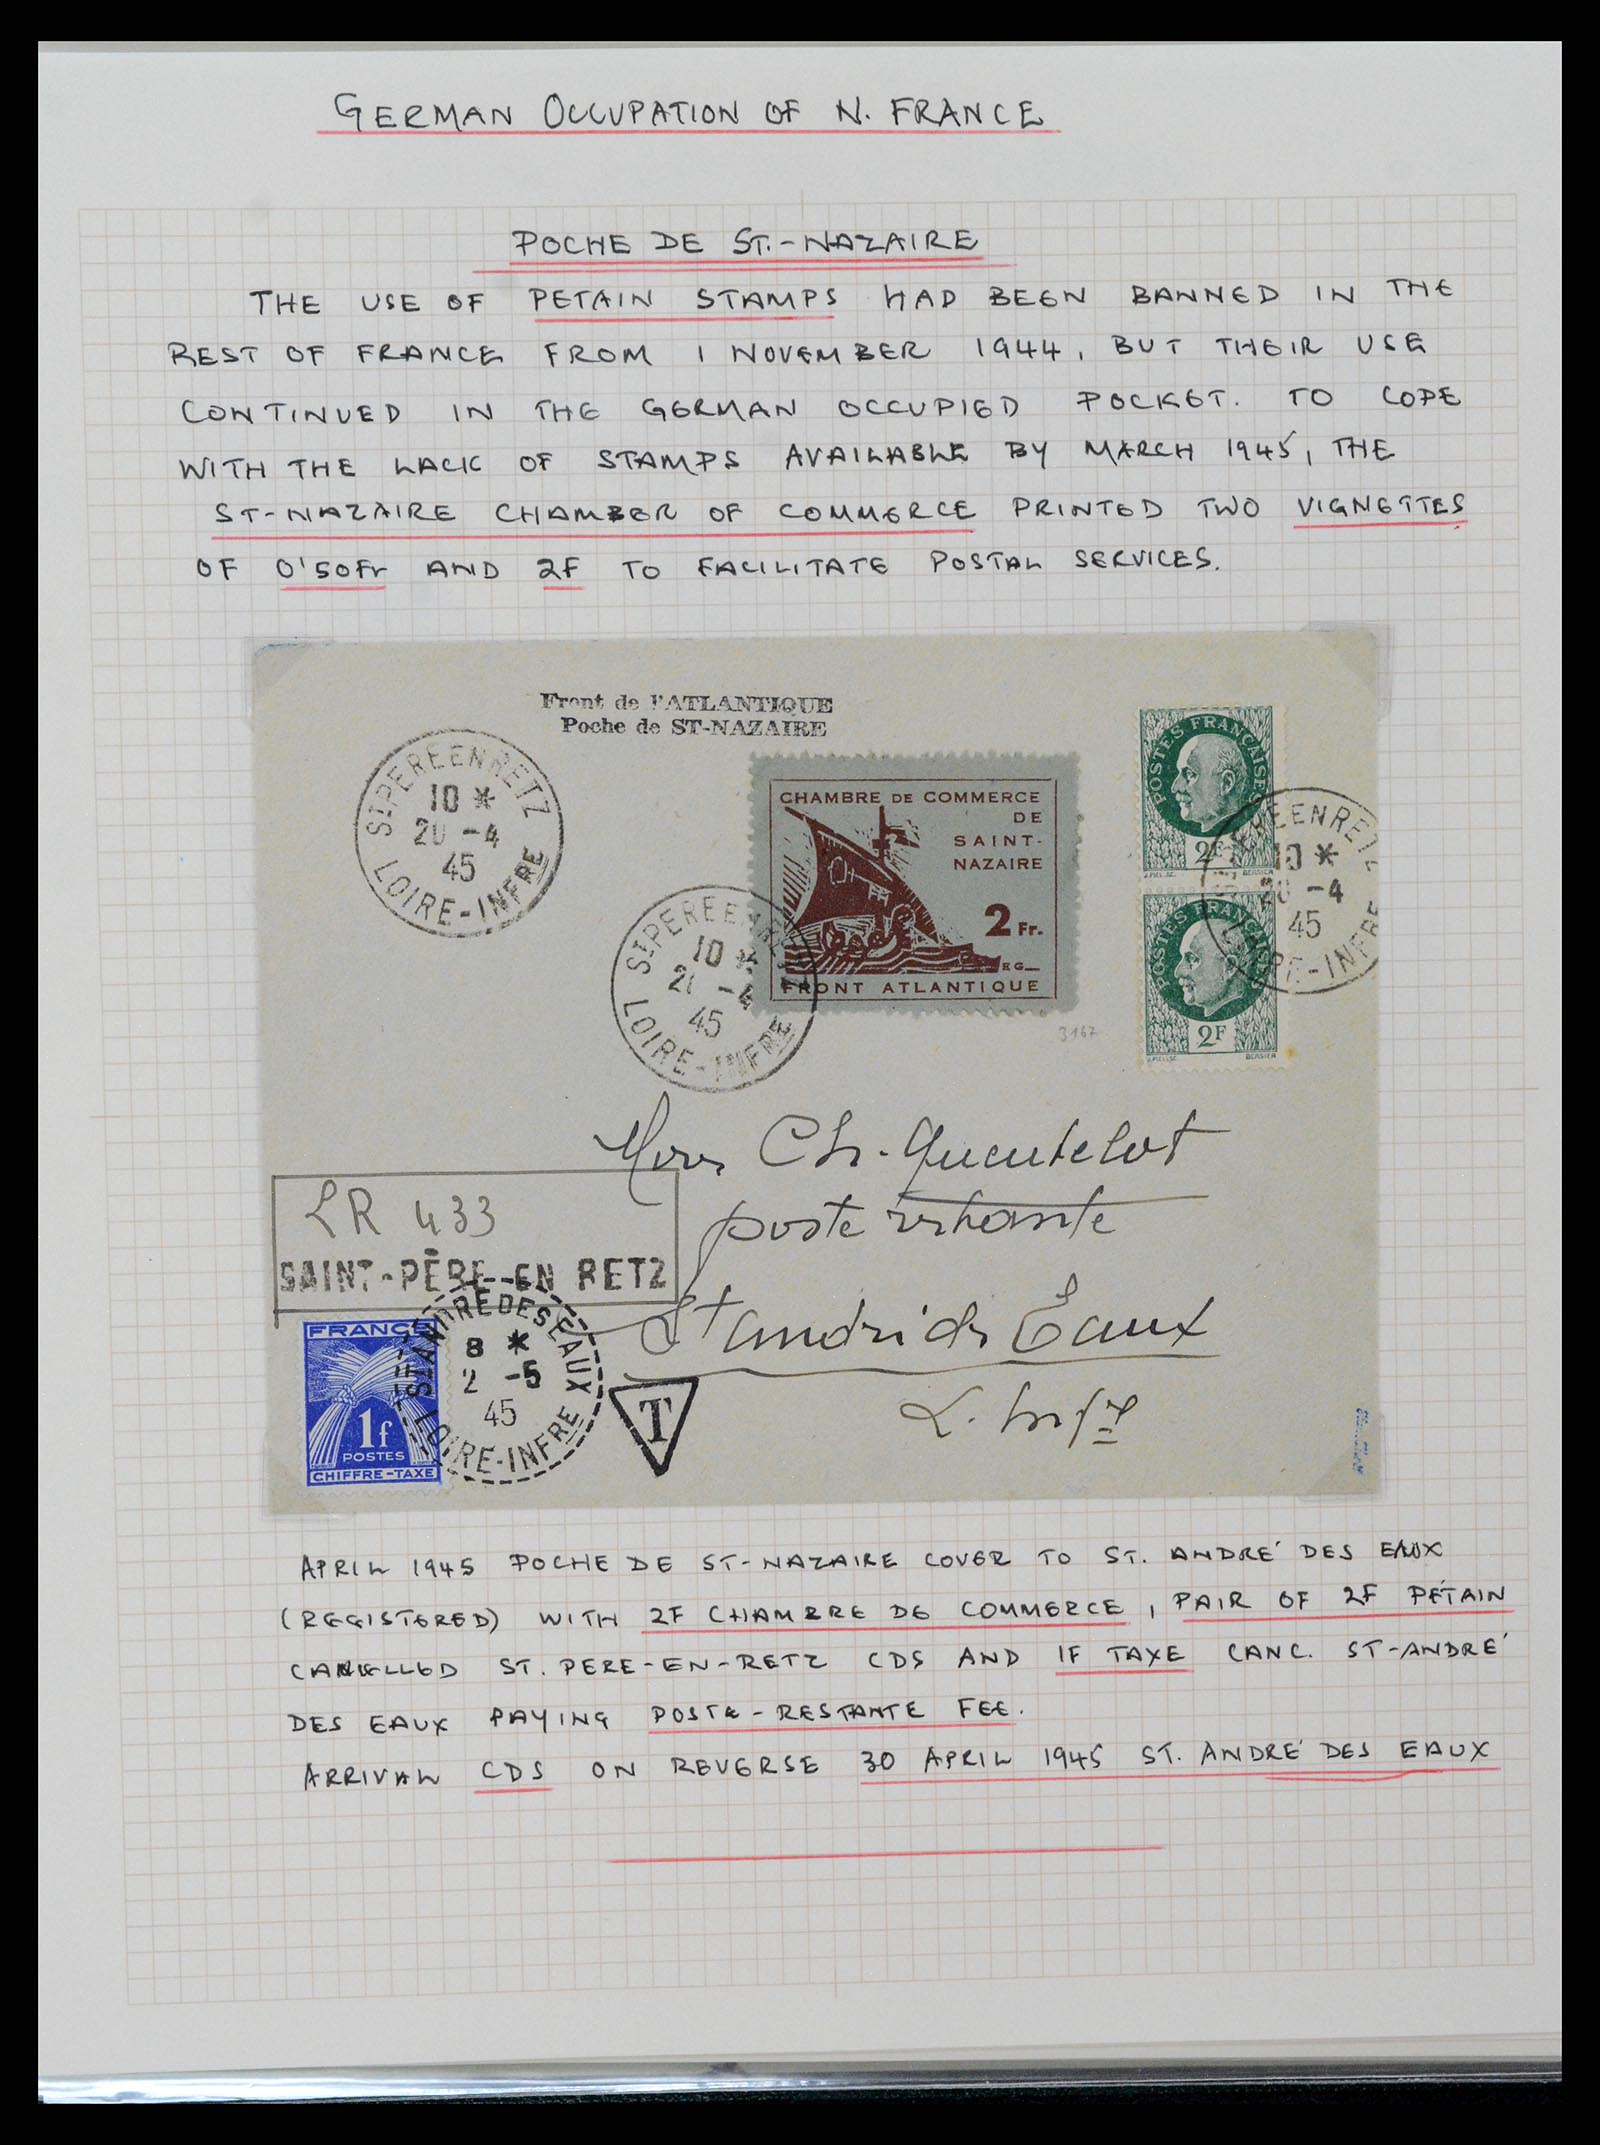 GERMAN OCCUPATION OF N. FRANCE
POCHE DE ST.-NAZAIRE
THE USE OF PETAIN STAMPS HAD BEEN BANNED IN THE
REST OF FRANCE FROM 1 NOVEMBER 1944, BUT THEIR USE
CONTINUED IN THE GERMAN OCCUPIED POCKET. TO COPE
WITH THE LACK OF STAMPS AVAILABLE BY MARCH 1945, THE
ST-NAZAIRE CHAMBER OF COMMERCE PRINTED TWO VIGNETTES
OF 0'50Fr AND 2F TO FACILITATE POSTAL SERVICES.
Front de l'ATLANTIQUE
Poche de ST-NAZAIRE
ST PERE EN RETZ
10 *
20 -4
45
LOIRE-INFRE
CHAMBRE DE COMMERCE
DE
SAINT-
NAZAIRE
2 Fr.
FRONT ATLANTIQUE
ST PERE EN RETZ
10 *
21 -4
45
LOIRE-INFRE
POSTES FRANÇAISES
2F
BERSIER
10 *
20 -4
45
POSTES FRANÇAISES
2F
BERSIER
3167
Ch. Queutelot
poste restante
St André des Eaux
L. Infre
LR 433
SAINT-PÈRE-EN RETZ
FRANCE
1f
POSTES
CHIFFRE-TAXE
ST ANDRE DES EAUX
8 *
2 -5
45
LOIRE-INFRE
T
APRIL 1945 POCHE DE ST-NAZAIRE COVER TO ST. ANDRÉ DES EAUX
(REGISTERED) WITH 2F CHAMBRE DE COMMERCE, PAIR OF 2F PÉTAIN
CANCELLED ST. PERE-EN-RETZ CDS AND 1F TAXE CANC. ST-ANDRÉ
DES EAUX PAYING POSTE-RESTANTE FEE.
ARRIVAL CDS ON REVERSE 30 APRIL 1945 ST. ANDRÉ DES EAUX